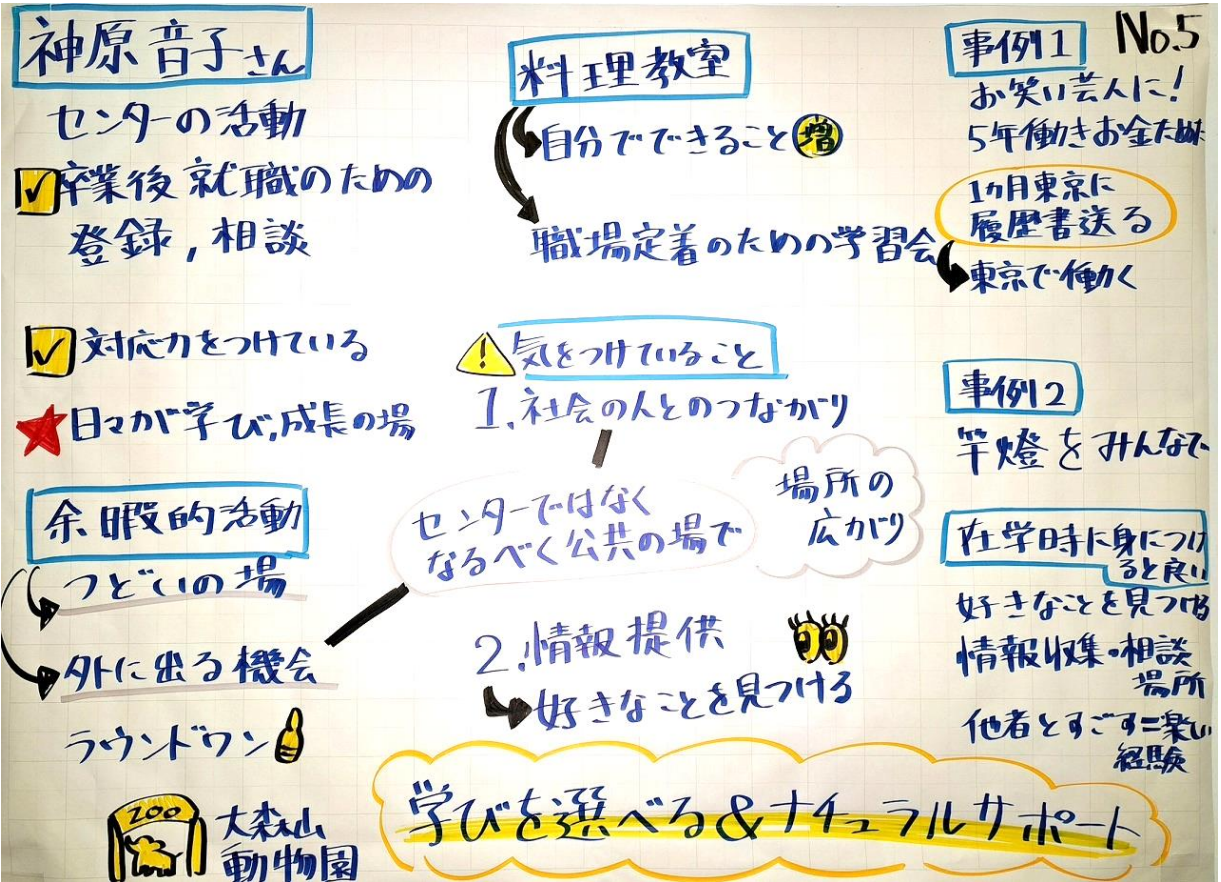 No.5
神原音子さん
センターの活動
卒業後就職のための
登録,相談
対応力をつけている
日々が学び,成長の場
余暇的活動
つどいの場
外に出る機会
ラウンドワン
ZOO
大森山
動物園
料理教室
自分でできること増
職場定着のための学習会
!
気をつけていること
1.社会の人とのつながり
センターではなく
なるべく公共の場で
場所の
広がり
2.情報提供
好きなことを見つける
学びを選べる&ナチュラルサポート
事例1
お笑い芸人に!
5年働きお金ためた
1ヵ月東京に
履歴書送る
東京で働く
事例2
竿燈をみんなで
在学時に身につけ
ると良い
好きなことを見つける
情報収集・相談
場所
他者とすごす=楽しい
経験